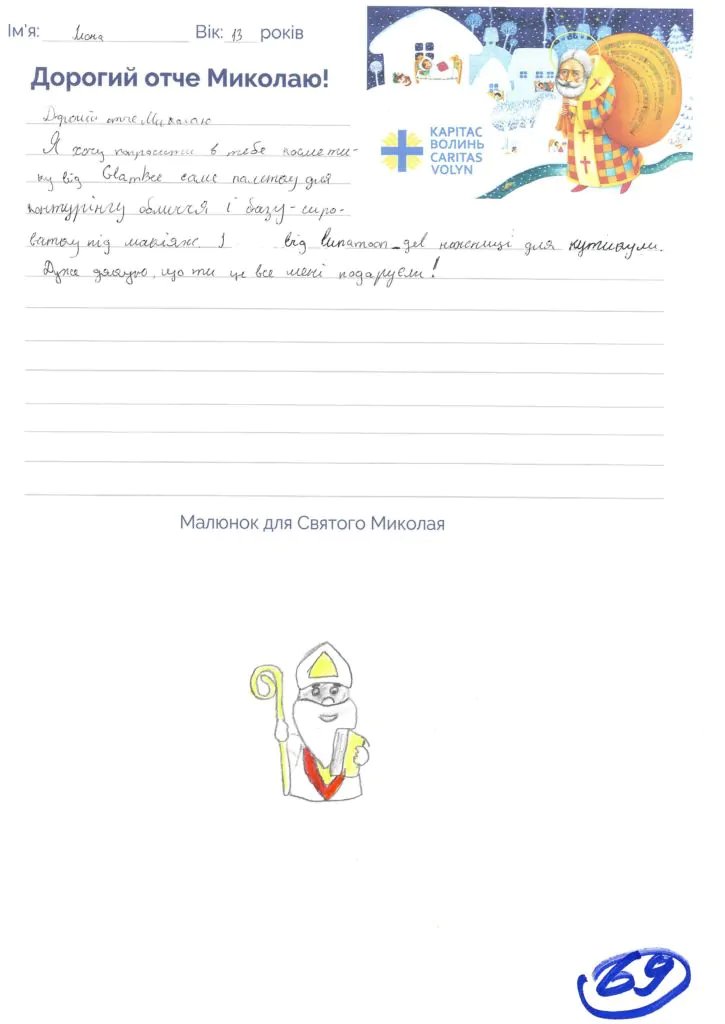 Ім'я: Ілона Вік: 13 років
Дорогий отче Миколаю!
КАРІТАС
ВОЛИНЬ
CARITAS
VOLYN
Дорогий отче Миколаю
Я хочу попросити в тебе космети-
ку від GlamBee саме палетку для
контурінгу обличчя і базу-сиро-
ватку під макіяж. І від lunamoon_gel ножниці для кутикули.
Дуже дякую, що ти це все мені подаруєш!
Малюнок для Святого Миколая
69